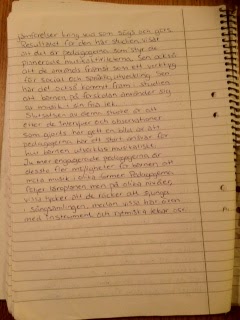 hänförelser kring vad som sägs och görs.
Resultatet för den här studien visar
att det är pedagogerna som styr de
planerade musikaktiviteterna. Sen också
att de används främst som ett verktyg
för social och språklig utveckling. Sen
har det också kommit fram i studien
att barnen på förskolan använder sig
av musik i sin fria lek.
Slutsatsen av denna studie är att
efter de intervjuer och observationer
som gjorts har gett en bild av att
pedagogerna har ett stort ansvar för
hur barnen utvecklas musikaliskt.
Ju mer engagerade pedagogerna är
desto fler möjligheter för barnen att
möta musik i olika former. Pedagogerna
följer läroplanen men på olika nivåer,
vissa tycker att de räcker att sjunga
i sångsamlingen, medan vissa har även
med instrument och rytmiska lekar osv.